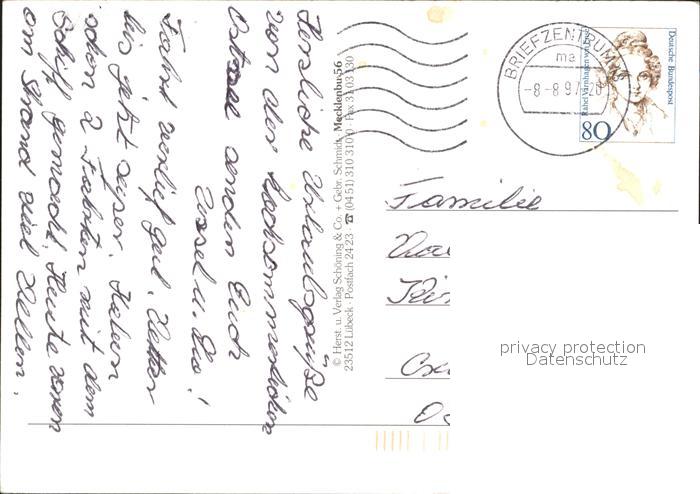 Herzliche Urlaubsgrüße
von der hochsommerlichen
Ostsee senden Euch
Ursel u. Udo!
Fahrt verlief gut, Wetter
bis jetzt super. Haben
schon 2 Fahrten mit dem
Schiff gemacht. Heute waren
am Strand viel Wellen.
© Herst. u. Verlag Schöning & Co. + Gebr. Schmidt
23512 Lübeck · Postfach 24 23 · ☎ (04 51) 310 310
BRIEFZENTRUM
ma
-8-8.97-20
Deutsche Bundespost
Rahel Varnhagen von Ense
80
Familie
privacy protection
Datenschutz